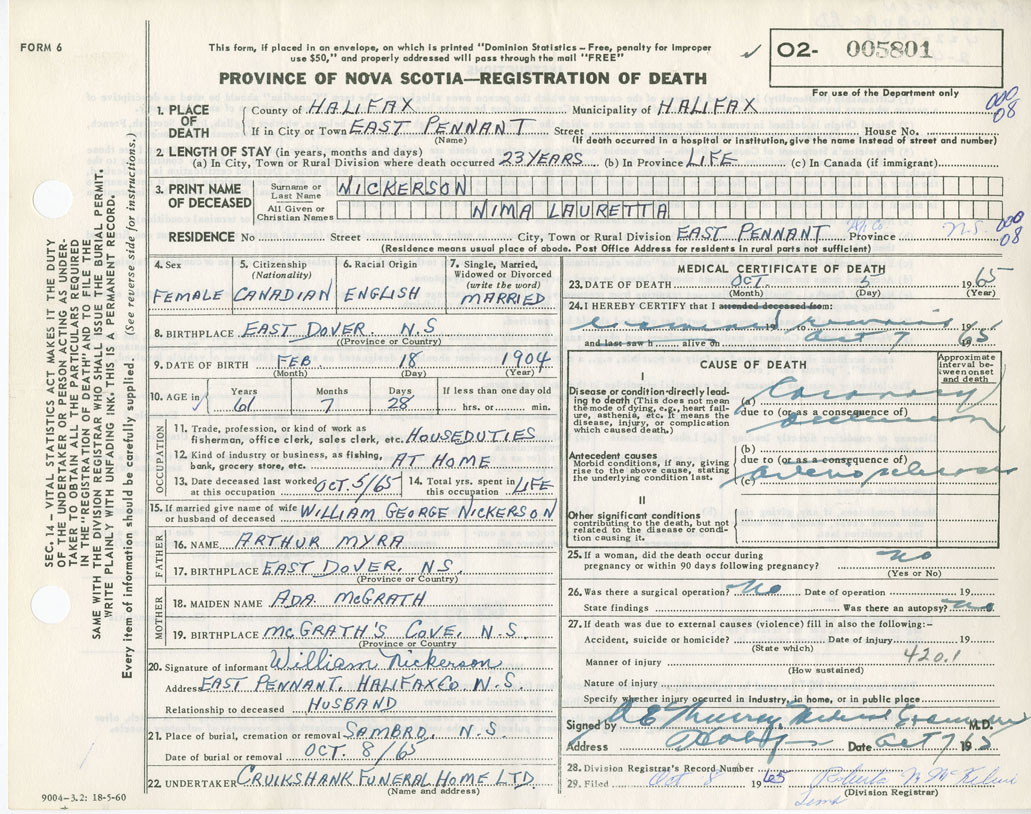 FORM 6
This form, if placed in an envelope, on which is printed "Dominion Statistics – Free, penalty for improper
use $50," and properly addressed will pass through the mail "FREE"
PROVINCE OF NOVA SCOTIA—REGISTRATION OF DEATH
✓ 02- 005801
For use of the Department only
1. PLACE OF DEATH
County of HALIFAX Municipality of HALIFAX
000
08
If in City or Town EAST PENNANT Street House No.
(Name) (If death occurred in a hospital or institution, give the name instead of street and number)
2. LENGTH OF STAY (in years, months and days)
(a) In City, Town or Rural Division where death occurred 23 YEARS (b) In Province LIFE (c) In Canada (if immigrant)
3. PRINT NAME OF DECEASED
Surname or Last Name NICKERSON
All Given or Christian Names NIMA LAURETTA
RESIDENCE No Street City, Town or Rural Division EAST PENNANT Hfx Co Province N.S.
000
08
(Residence means usual place of abode. Post Office Address for residents in rural parts not sufficient)
4. Sex
FEMALE
5. Citizenship
(Nationality)
CANADIAN
6. Racial Origin
ENGLISH
7. Single, Married,
Widowed or Divorced
(write the word)
MARRIED
8. BIRTHPLACE EAST DOVER. N.S
(Province or Country)
9. DATE OF BIRTH FEB 18 1904
(Month) (Day) (Year)
10. AGE in ✓ Years Months Days If less than one day old
61 7 28 hrs. or min.
OCCUPATION
11. Trade, profession, or kind of work as
fisherman, office clerk, sales clerk, etc. HOUSEDUTIES
12. Kind of industry or business, as fishing,
bank, grocery store, etc. AT HOME
13. Date deceased last worked
at this occupation OCT. 5/65
14. Total yrs. spent in
this occupation LIFE
15. If married give name of wife
or husband of deceased WILLIAM GEORGE NICKERSON
FATHER
16. NAME ARTHUR MYRA
17. BIRTHPLACE EAST DOVER. N.S.
(Province or Country)
MOTHER
18. MAIDEN NAME ADA McGRATH
19. BIRTHPLACE McGRATH'S COVE, N.S.
(Province or Country)
20. Signature of informant William Nickerson
Address EAST PENNANT, HALIFAX CO. N.S.
Relationship to deceased HUSBAND
21. Place of burial, cremation or removal SAMBRO, N.S.
Date of burial or removal OCT. 8/65
22. UNDERTAKER CRUIKSHANK FUNERAL HOME LTD.
(Name and address)
MEDICAL CERTIFICATE OF DEATH
23. DATE OF DEATH OCT. 5 1965
(Month) (Day) (Year)
24. I HEREBY CERTIFY that I attended deceased from:
examined 19 to remains 19
and last saw h alive on Oct 7 1965
CAUSE OF DEATH
Approximate
interval be-
tween onset
and death
I
Disease or condition directly lead-
ing to death (This does not mean
the mode of dying, e.g., heart fail-
ure, asthenia, etc. It means the
disease, injury, or complication
which caused death).
(a) Coronary
due to (or as a consequence of)
occlusion
Antecedent causes
Morbid conditions, if any, giving
rise to the above cause, stating
the underlying condition last.
(b)
due to (or as a consequence of)
(c)
II
Other significant conditions
contributing to the death, but not
related to the disease or condi-
tion causing it.
25. If a woman, did the death occur during
pregnancy or within 90 days following pregnancy? no
(Yes or No)
26. Was there a surgical operation? No Date of operation 19
State findings Was there an autopsy? no
27. If death was due to external causes (violence) fill in also the following:–
Accident, suicide or homicide? Date of injury 19
(State which)
420.1
Manner of injury
(How sustained)
Nature of injury
Specify whether injury occurred in industry, in home, or in public place
Signed by Murray Medical Examiner M.D.
Address Date Oct 7 1965
28. Division Registrar's Record Number
29. Filed Oct 8 1965 Roberta
(Division Registrar)
SEC. 14 – VITAL STATISTICS ACT MAKES IT THE DUTY
OF THE UNDERTAKER OR PERSON ACTING AS UNDER-
TAKER TO OBTAIN ALL THE PARTICULARS REQUIRED
IN THE "REGISTRATION OF DEATH" AND TO FILE THE
SAME WITH THE DIVISION REGISTRAR WHO SHALL ISSUE THE BURIAL PERMIT.
WRITE PLAINLY WITH UNFADING INK. THIS IS A PERMANENT RECORD.
Every item of information should be carefully supplied. (See reverse side for instructions.)
9004–3.2: 18-5-60